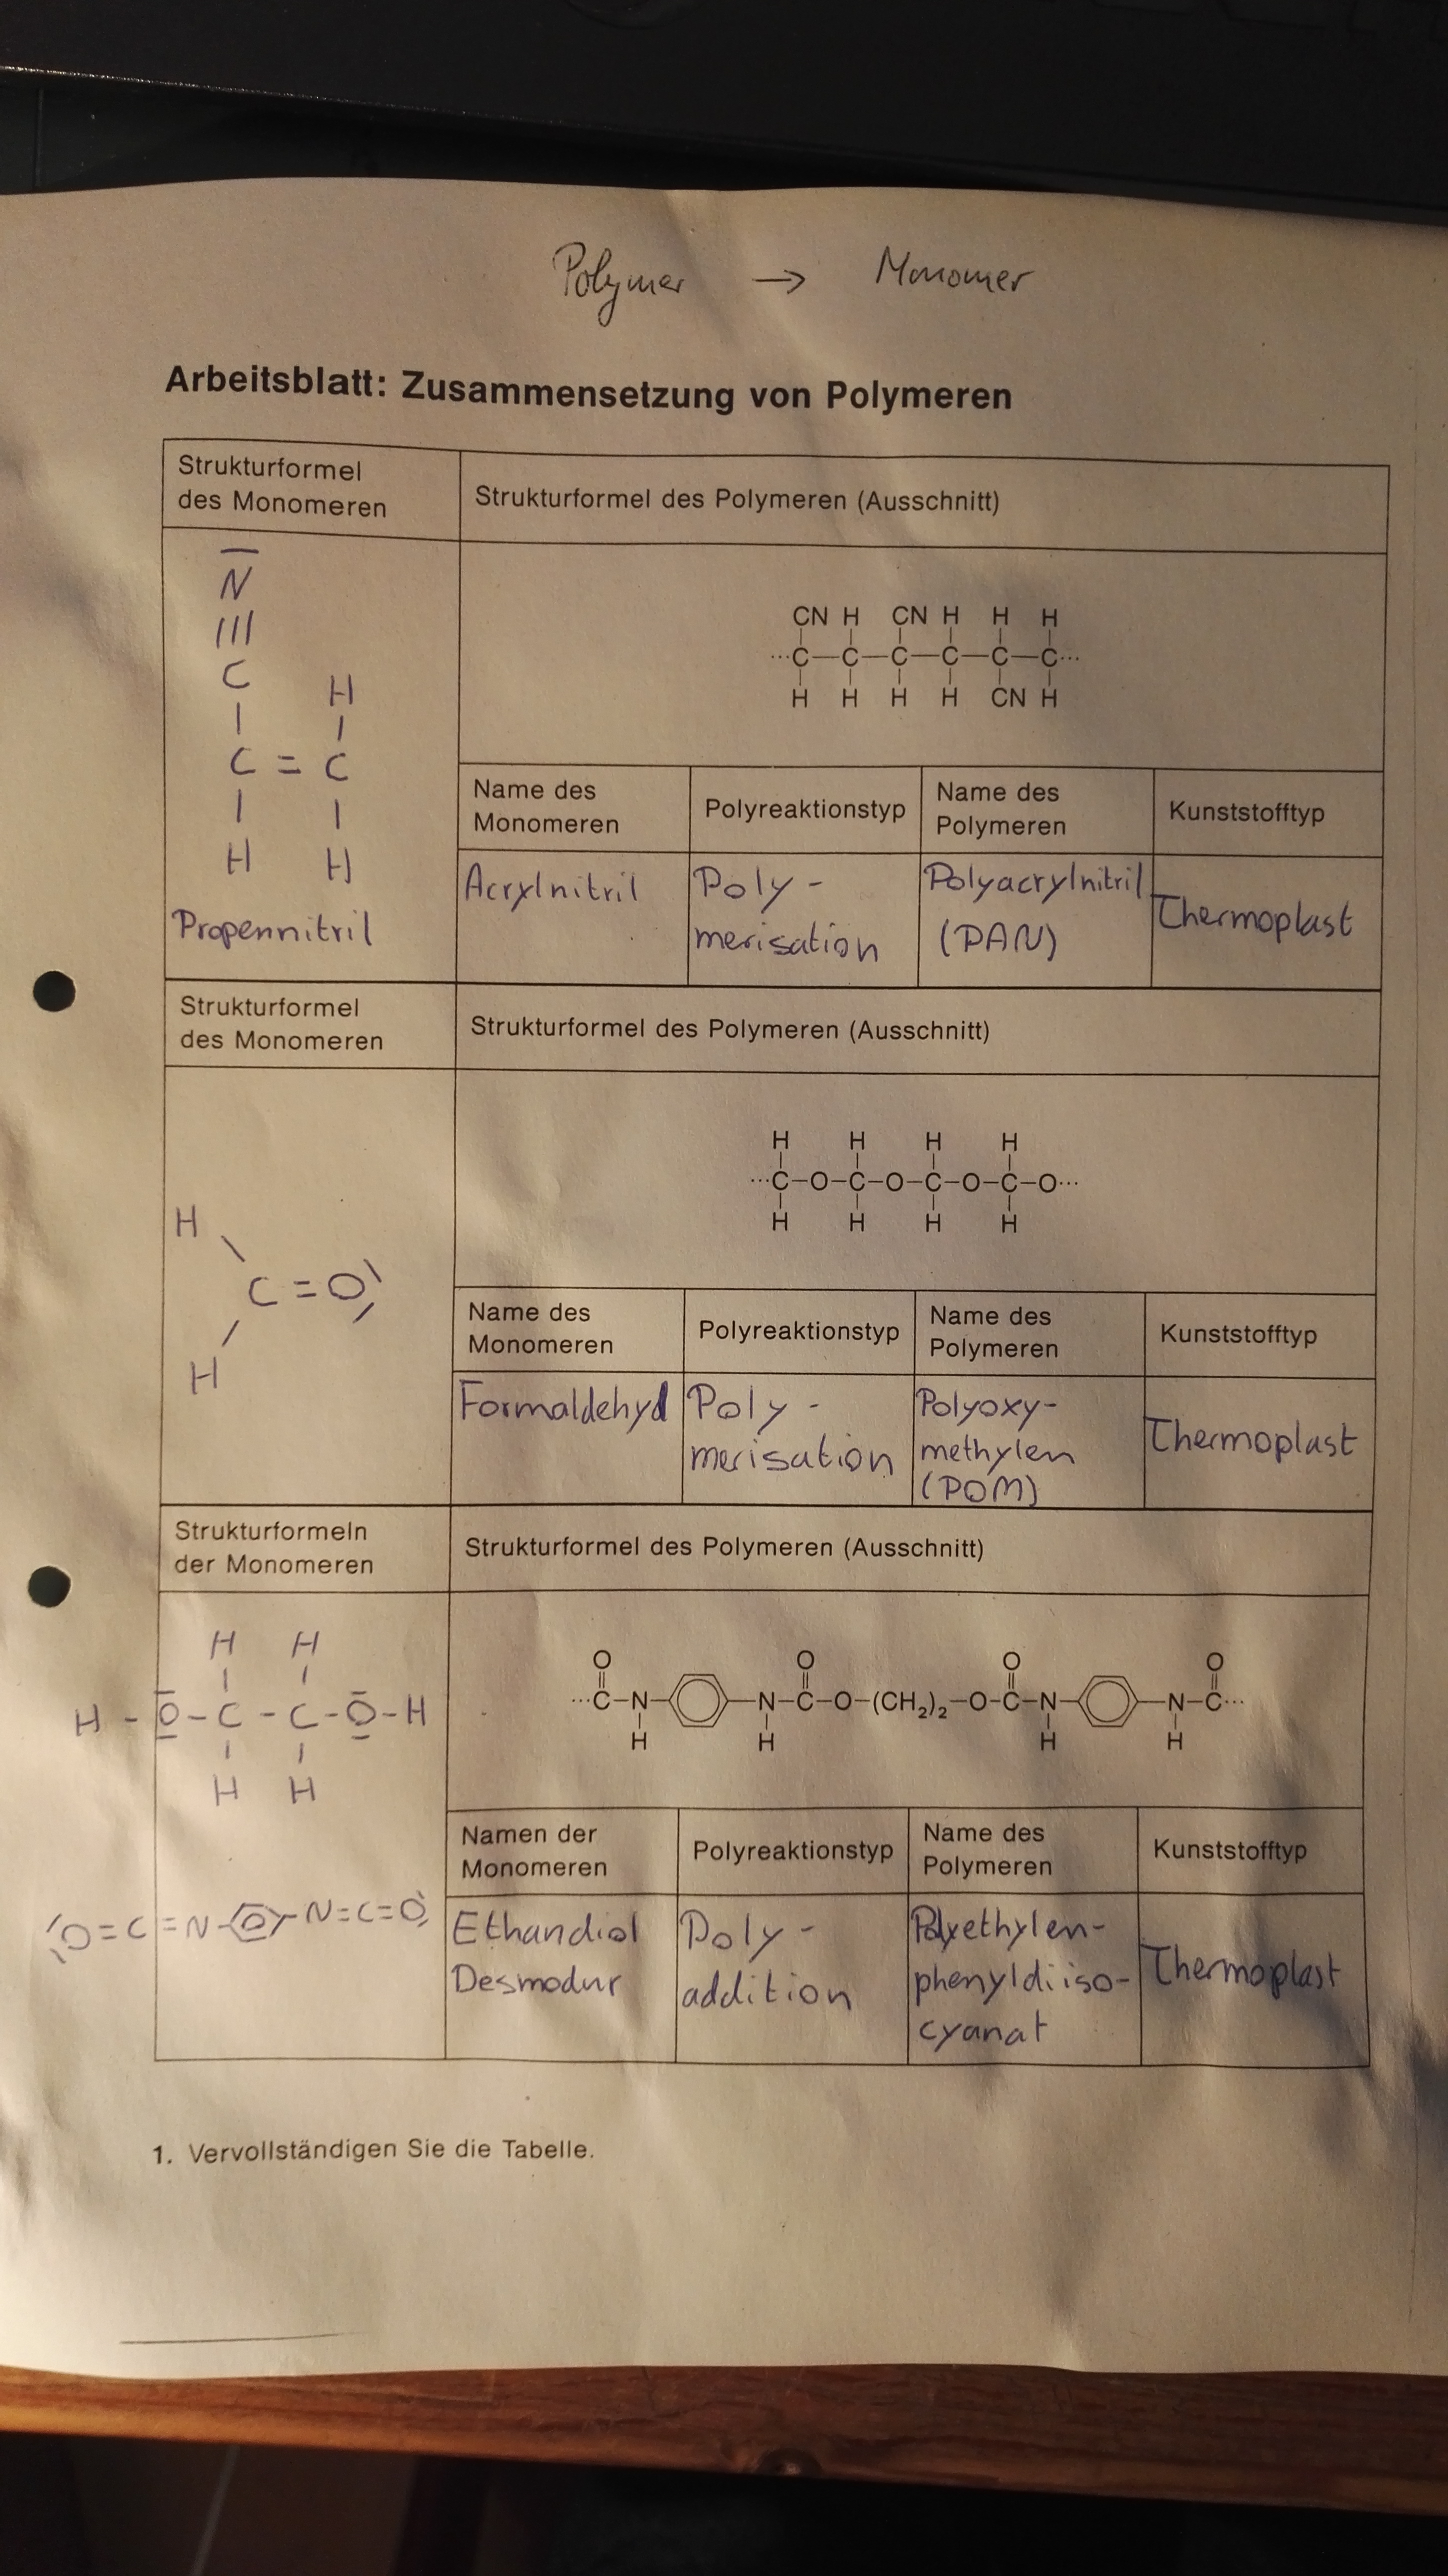 Polymer → Monomer
Arbeitsblatt: Zusammensetzung von Polymeren
Strukturformel
des Monomeren
Strukturformel des Polymeren (Ausschnitt)
N
|||
C H
| |
C = C
| |
H H
Propennitril
CN H CN H H H
···C—C—C—C—C—C···
H H H H CN H
Name des
Monomeren
Polyreaktionstyp
Name des
Polymeren
Kunststofftyp
Acrylnitril
Poly-
merisation
Polyacrylnitril
(PAN)
Thermoplast
Strukturformel
des Monomeren
Strukturformel des Polymeren (Ausschnitt)
H
C=O
H
H H H H
···C–O–C–O–C–O–C–O···
H H H H
Name des
Monomeren
Polyreaktionstyp
Name des
Polymeren
Kunststofftyp
Formaldehyd
Poly-
merisation
Polyoxy-
methylen
(POM)
Thermoplast
Strukturformeln
der Monomeren
Strukturformel des Polymeren (Ausschnitt)
H H
H-O-C-C-O-H
H H
O=C=N- -N=C=O
O O O O
···C–N– –N–C–O–(CH₂)₂–O–C–N– –N–C···
H H H H
Namen der
Monomeren
Polyreaktionstyp
Name des
Polymeren
Kunststofftyp
Ethandiol
Desmodur
Poly-
addition
Polyethylen-
phenyldiiso-
cyanat
Thermoplast
1. Vervollständigen Sie die Tabelle.